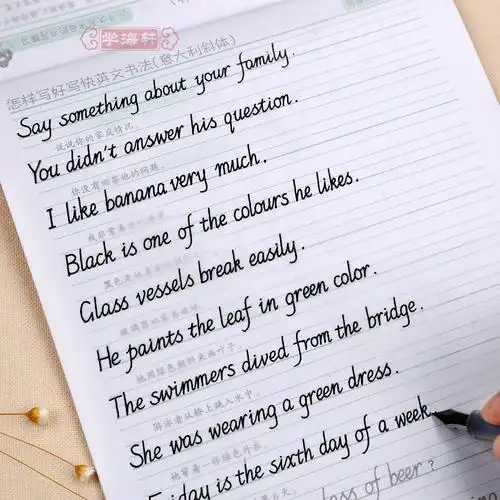 学海轩
怎样写好写快英文书法(意大利斜体)
Say something about your family.
说说你的家庭情况。
You didn't answer his question.
你没有回答他的问题。
I like banana very much.
我非常
Black is one of the colours he likes.
黑色是
Glass vessels break easily.
He paints the leaf in green color.
他用绿色颜料来画叶子。
The swimmers dived from the bridge.
游泳者从桥上跳入水中。
She was wearing a green dress.
她穿着一件绿色外衣。
Friday is the sixth day of a week.
glass of beer?